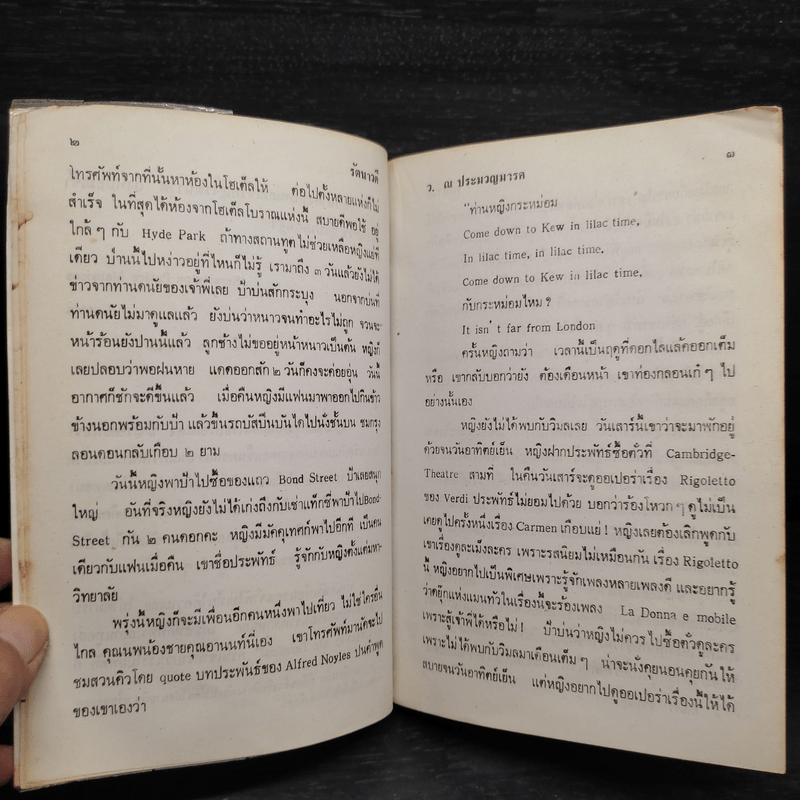 ๒
รัตนาวดี
โทรศัพท์จากที่นั้นหาห้องในโฮเต็ลให้ ต่อไปตั้งหลายแห่งก็ไม่
สำเร็จ ในที่สุดได้ห้องจากโฮเต็ลโบราณแห่งนี้ สบายดีพอใช้ อยู่
ใกล้ๆ กับ Hyde Park ถ้าทางสถานทูตไม่ช่วยเหลือหญิงแย่ที
เดียว ป่านนี้ไปหง่าวอยู่ที่ไหนก็ไม่รู้ เรามาถึง ๓ วันแล้วยังไม่ได้
ข่าวจากท่านดนัยของเจ้าพี่เลย ป้าบ่นสักกระบุง นอกจากบ่นที่
ท่านดนัยไม่มาดูแลแล้ว ยังบ่นว่าหนาวจนทำอะไรไม่ถูก จวนจะ
หน้าร้อนยังปานนี้แล้ว ลูกช้างไม่ขออยู่หน้าหนาวเป็นต้น หญิงก็
เลยปลอบว่าพอฝนหาย แดดออกสัก ๒ วันก็คงจะค่อยอุ่น วันนี้
อากาศก็ชักจะดีขึ้นแล้ว เมื่อคืนหญิงมีแฟนมาพาออกไปกินข้าว
ข้างนอกพร้อมกับป้า แล้วขึ้นรถบัสปีนบันไดไปนั่งชั้นบน ชมกรุง
ลอนดอนกลับเกือบ ๒ ยาม
วันนี้หญิงพาป้าไปซื้อของแถว Bond Street ป้าเลยสนุก
ใหญ่ อันที่จริงหญิงยังไม่ได้เก่งถึงกับเช่าแท็กซี่พาป้าไปBond-
Street กัน ๒ คนดอกคะ หญิงมีมัคคุเทศก์พาไปอีกที เป็นคน
เดียวกับแฟนเมื่อคืน เขาชื่อประพัทธ์ รู้จักกับหญิงตั้งแต่มหา-
วิทยาลัย
พรุ่งนี้หญิงก็จะมีเพื่อนอีกคนหนึ่งพาไปเที่ยว ไม่ใช่ใครอื่น
ไกล คุณนพน้องชายคุณอานนท์นี่เอง เขาโทรศัพท์มานัดจะไป
ชมสวนคิวโดย quote บทประพันธ์ของ Alfred Noyles ปนคำพูด
ของเขาเองว่า
๓
ว. ณ ประมวญมารค
"ท่านหญิงกระหม่อม
Come down to Kew in lilac time,
In lilac time, in lilac time.
Come down to Kew in lilac time,
กับกระหม่อมไหม ?
It isn't far from London
ครั้นหญิงถามว่า เวลานี้เป็นฤดูที่ดอกไลแล้คออกเต็ม
หรือ เขากลับบอกว่ายัง ต้องเดือนหน้า เขาท่องกลอนเก๋ๆ ไป
อย่างนั้นเอง
หญิงยังไม่ได้พบกับวิมลเลย วันเสาร์นี้เขาว่าจะมาพักอยู่
ด้วยจนวันอาทิตย์เย็น หญิงฝากประพัทธ์ซื้อตั๋วที่ Cambridge-
Theatre สามที่ ในคืนวันเสาร์จะดูออเปอร่าเรื่อง Rigoletto
ของ Verdi ประพัทธ์ไม่ยอมไปด้วย บอกว่าร้องโหวกๆ ดูไม่เป็น
เคยดูไปครั้งหนึ่งเรื่อง Carmen เกือบแย่ ! หญิงเลยต้องเลิกพูดกับ
เขาเรื่องดูละเม็งละคร เพราะรสนิยมไม่เหมือนกัน เรื่อง Rigoletto
นี้ หญิงอยากไปเป็นพิเศษเพราะรู้จักเพลงหลายเพลงดี และอยากรู้
ว่าดยุ๊กแห่งแมนทัวในเรื่องนี้จะร้องเพลง La Donna e mobile
เพราะสู้เจ้าพี่ได้หรือไม่ ! ป้าบ่นว่าหญิงไม่ควรไปซื้อตั๋วดูละคร
เพราะไม่ได้พบกับวิมลมาเดือนเต็มๆ น่าจะนั่งคุยนอนคุยกันให้
สบายจนวันอาทิตย์เย็น แต่หญิงอยากไปดูออเปอร่าเรื่องนี้ให้ได้